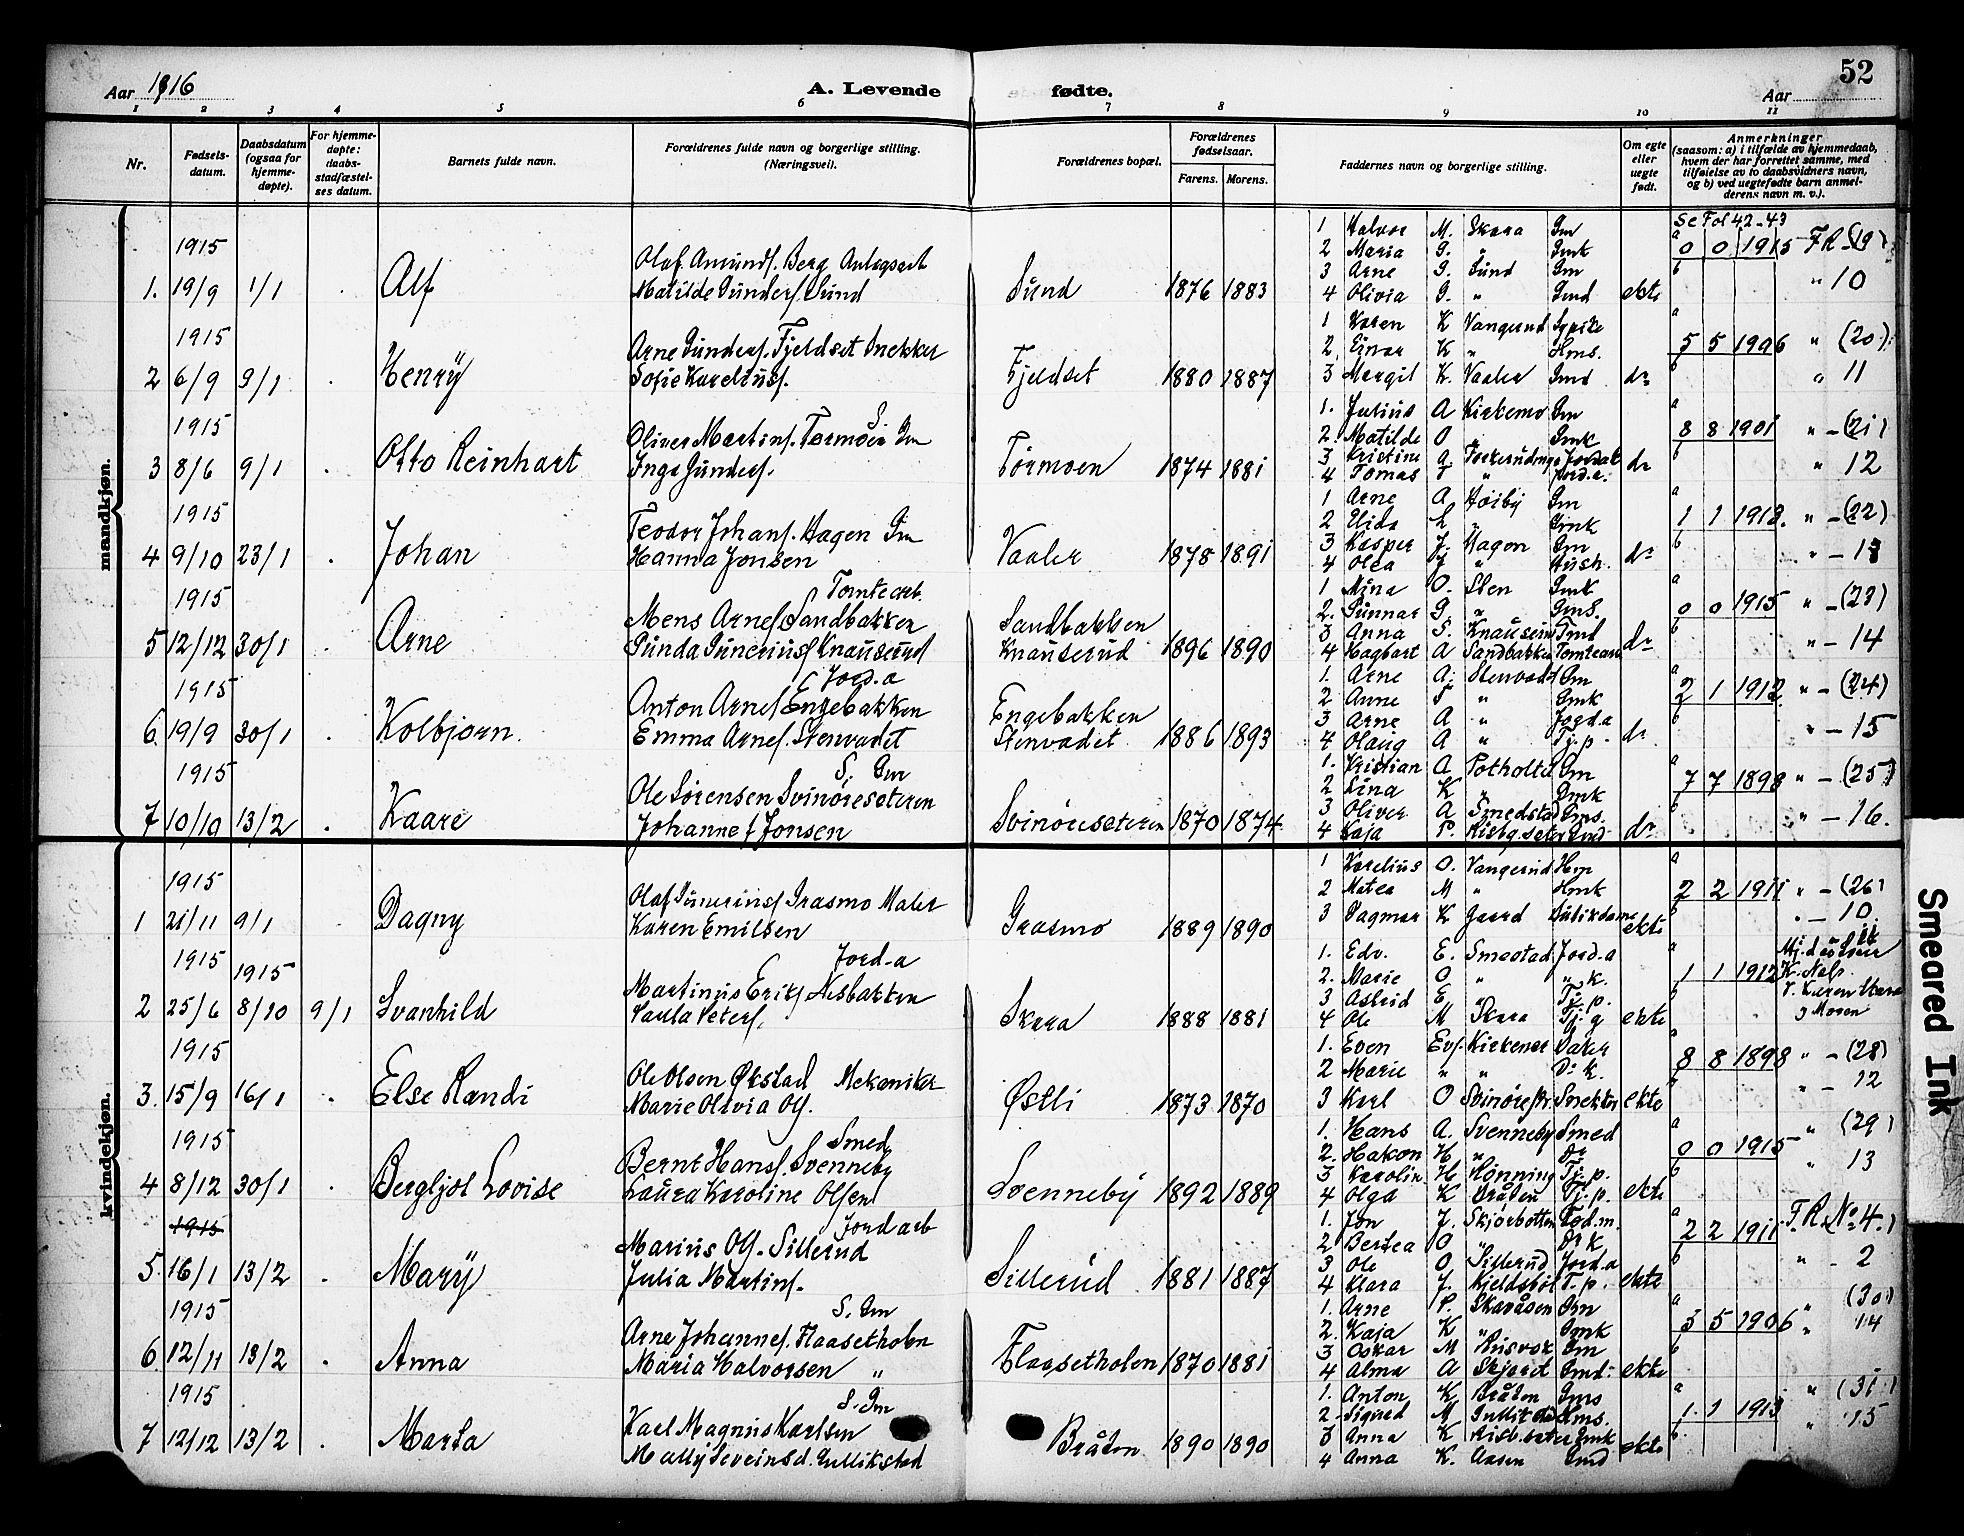 Aar 1916
A. Levende fødte.
52
Aar
1 2 3 4 5 6 7 8 9 10 11
Nr.
Fødsels-datum.
Daabsdatum (ogsaa for hjemme-døpte).
For hjemme-døpte: daabs-stadfæstel-ses datum.
Barnets fulde navn.
Forældrenes fulde navn og borgerlige stilling. (Næringsvei).
Forældrenes bopæl.
Forældrenes fødselsaar.
Farens. Morens.
Faddernes navn og borgerlige stilling.
Om egte eller uegte født.
Anmerkninger (saasom: a) i tilfælde av hjemmedaab, hvem der har forrettet samme, med tilføielse av to daabsvidners navn, og b) ved uegtefødte barn anmel-derens navn m. v.).
mandkjøn.
Se Fol 42-43
1915
1. 19/9 1/1 Alf
Olaf Amunds. Berg Anlegsarb
Matilde Gunders. Sund
Sund 1876 1883
1 Halvor M. Skara Gm
2 Maria G. " Gmk
3 Arne G. Sund Gm
4 Olivia G. " Gmd
ekte
0 0 1915 F R (19)
" 10
1915
2 6/9 9/1 Henry
Arne Gunders. Fjeldset Snekker
Sofie Kareliusf.
Fjeldset 1880 1887
1 Karen K Vangerud
2. Einar K " Hms.
3 Margit K. Vaaler Gmd
do
5 5 1906 " (20)
" 11
1915
3 8/6 9/1 Otto Reinhart
Oliver Martins. Tørmoen S. Gm
Inga Gunders.
Tørmoen 1874 1881
1. Julius A Kirkemo Gm
2. Matilde O " Gmk
3 Kristine A
4 Tomas T " Jord.a.
do
8 8 1901 " (21)
" 12
1915
4 9/10 23/1 Johan
Teodor Johans. Hagen Gm
Hanna Jonsen
Vaaler 1878 1891
1 Arne A Høiby Gm
2 Elida L " Gmk
3 Kasper J. Hagen Gm
4 Olea J " Hush.
do
1 1 1912. " (22)
" 13
1915
5 12/12 30/1 Arne
Tomtearb.
Mens Arnes. Sandbakken
Gunda Gunerius. Knauserud
Sandbakken
Knauserud 1896 1890
1 Mina O. Sten Gmk
2. Gunnar G. " Gms.
3 Anna S. Gmd
4 Hagbart A Sandbakken Tomtearb
do
0 0 1915 " (23)
" 14
1915
6. 19/9 30/1 Kolbjørn.
Jord.a
Anton Arnes. Engebakken
Emma Arnes. Stenvadet
Engebakken
Stenvadet 1886 1893
1. Arne A. Stenvadet Gm
2 Anne T " Gmk
3 Arne A " Jord.a
4 Olaug A " Tj.p.
do
2 1 1912. " (24)
" 15
1915
7 10/10 13/2 Kaare
S. Gm
Ole Sørensen Svinøreseteren
Johannef Jonsen
Svinøreseteren 1870 1874
1. Kristian A Potholtet Gm
2 Lina K " Gmk
3 Oliver A Smedstad Gms.
4 Kaja P.
do
7 7 1898 " (25)
" 16.
kvindekjøn.
1915
1 21/11 9/1 Dagny
Olaf Gunerius. Grasmo Maler
Karen Emilsen
Grasmo 1889 1890
1 Karelius O. Vangerud Hm
2 Matea M " Hmk
3 Dagmar K Gaard Butikdame
ekte
2 2 1911 " (26)
" 10.
1915 1915
2 25/6 8/10 9/1 Svanhild
Jord-a
Martinus Eriks. Nesbakken
Paula Peters.
Skara 1888 1881
1. Edv. E. Smestad Jord.a
2. Marie O " " k.
3 Astrid E " Tj.p.
4 Ole M Skara Tj.g
ekte
1 1 1912 K. Nels.
V. Karen Skara
J Moren
1915
3. 15/9 16/1 Else Randi
Ole Olsen Økstad Mekaniker
Marie Olivia Ols.
Østli 1873 1870
1. Even Evs. Kirkener Baker
2 Marie " " D: k.
3 Karl O Snekker
ekte
8 8 1898 " (28)
" 12
1915
4 8/12 30/1 Bergljot Lovise
Smed
Bernt Hans. Svenneby
Laura Karoline Olsen
Svenneby 1892 1889
1. Hans A. Svenneby Smed
2. Hakon H " Do
3 Karolin H Hønning Tj.p.
4 Olga K Bråten Tj.p.
ekte
0 0 1915 " (29)
" 13
1915
5. 16/1 13/2 Mary
Jord arb
Marius Ols. Sillerud
Julia Martins.
Sillerud 1881 1887
1. Jon J. Skjørbotten Fød.m.
2 Bertea O " Do k
3 Ole O. Sillerud Jord.a
4 Klara J. Kjeldsbøl T.p.
ekte
2 2 1911 F.R. No 4.
" 2
1915
6. 12/11 13/2 Anna
S. Gm
Arne Johannes. Flaasetholen
Maria Halvorsen "
Flaasetholen 1870 1881
1. Arne P. Skaråsen Gm
2. Kaja K " Gmk
3 Oskar M Gm
4 Alma A Skjæret Gmd.
ekte
3 5 1906 " (30)
" 14
1915
7 12/12 13/2 Marta
S. Gm
Karl Magnus Karlsen
Mally Seveinsd. Gullikstad
Bråten 1890 1890
1. Anton K Bråten Gms
2. Sigurd M Gms.
3 Anna K Gmk
4 Anna K. Aasen Gmd
ekte
1. 1 1913 " (31)
" 15
Smeared Ink